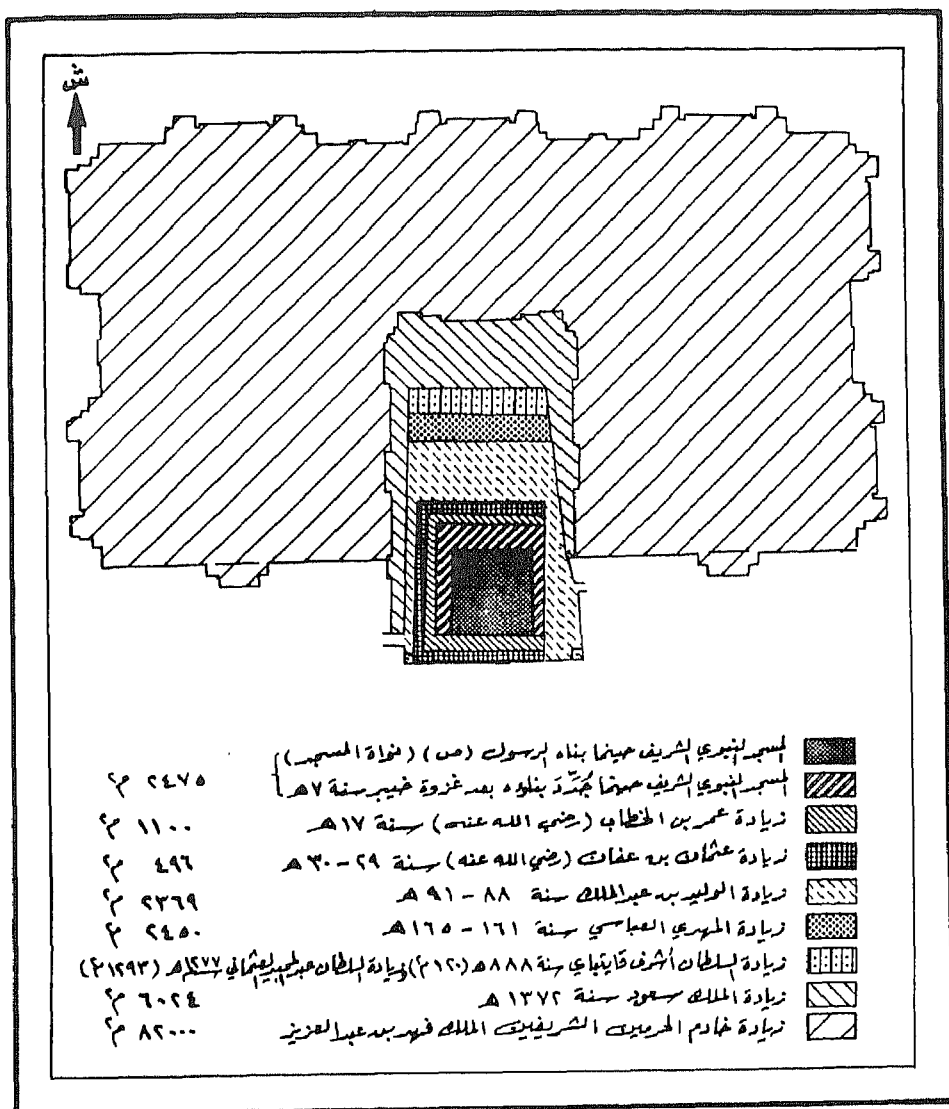 ش
المسجد النبوي الشريف حينما بناه الرسول (ص) (نواة المسجد)
المسجد النبوي الشريف حينما جُدِّدَ بناؤه بعد غزوة خيبر سنة ٧ هـ ٢٤٧٥ م٢
زيادة عمر بن الخطاب (رضي الله عنه) سنة ١٧ هـ ١١٠٠ م٢
زيادة عثمان بن عفان (رضي الله عنه) سنة ٢٩ - ٣٠ هـ ٤٩٦ م٢
زيادة الوليد بن عبدالملك سنة ٨٨ - ٩١ هـ ٢٣٦٩ م٢
زيادة المهدي العباسي سنة ١٦١ - ١٦٥ هـ ٢٤٥٠ م٢
زيادة السلطان أشرف قايتباي سنة ٨٨٨ هـ (١٢٠ م٢) وزيادة السلطان عبدالمجيد العثماني سنة ١٢٧٧ هـ (١٢٩٣ م٢)
زيادة الملك سعود سنة ١٣٧٢ هـ ٦٠٢٤ م٢
زيادة خادم الحرمين الشريفين الملك فهد بن عبد العزيز ٨٢٠٠٠ م٢